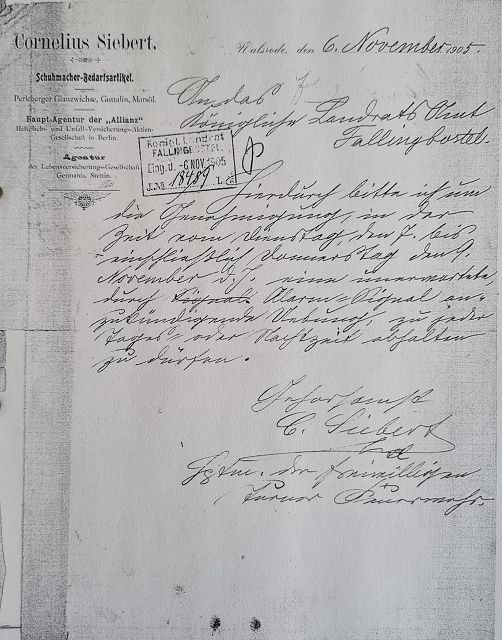 Cornelius Siebert.
Schuhmacher-Bedarfsartikel.
Perleberger Glanzwichse, Guttalin, Marsöl.
Haupt-Agentur der „Allianz"
Haftpflicht- und Unfall-Versicherungs-Aktien-
Gesellschaft in Berlin.
Agentur
der Lebensversicherungs-Gesellschaft
Germania, Stettin.
Walsrode, den 6. November 1905.
An das
Königliche Landrats Amt
Fallingbostel.
Königl. Landrat
FALLINGBOSTEL.
Eing. d. -6 NOV 1905
J.-№ 18489 L.
Hierdurch bitte ich um
die Genehmigung, in der
Zeit vom Dienstag, den 7. bis
einschließlich Donnerstag den 9.
November d. J. eine unerwartete,
durch Signal Alarm-Signal an-
zukündigende Uebung, zu jeder
Tages- oder Nachtzeit abhalten
zu dürfen.
Gehorsamst
C. Siebert
Hptm. der freiwilligen
Turner Feuerwehr.